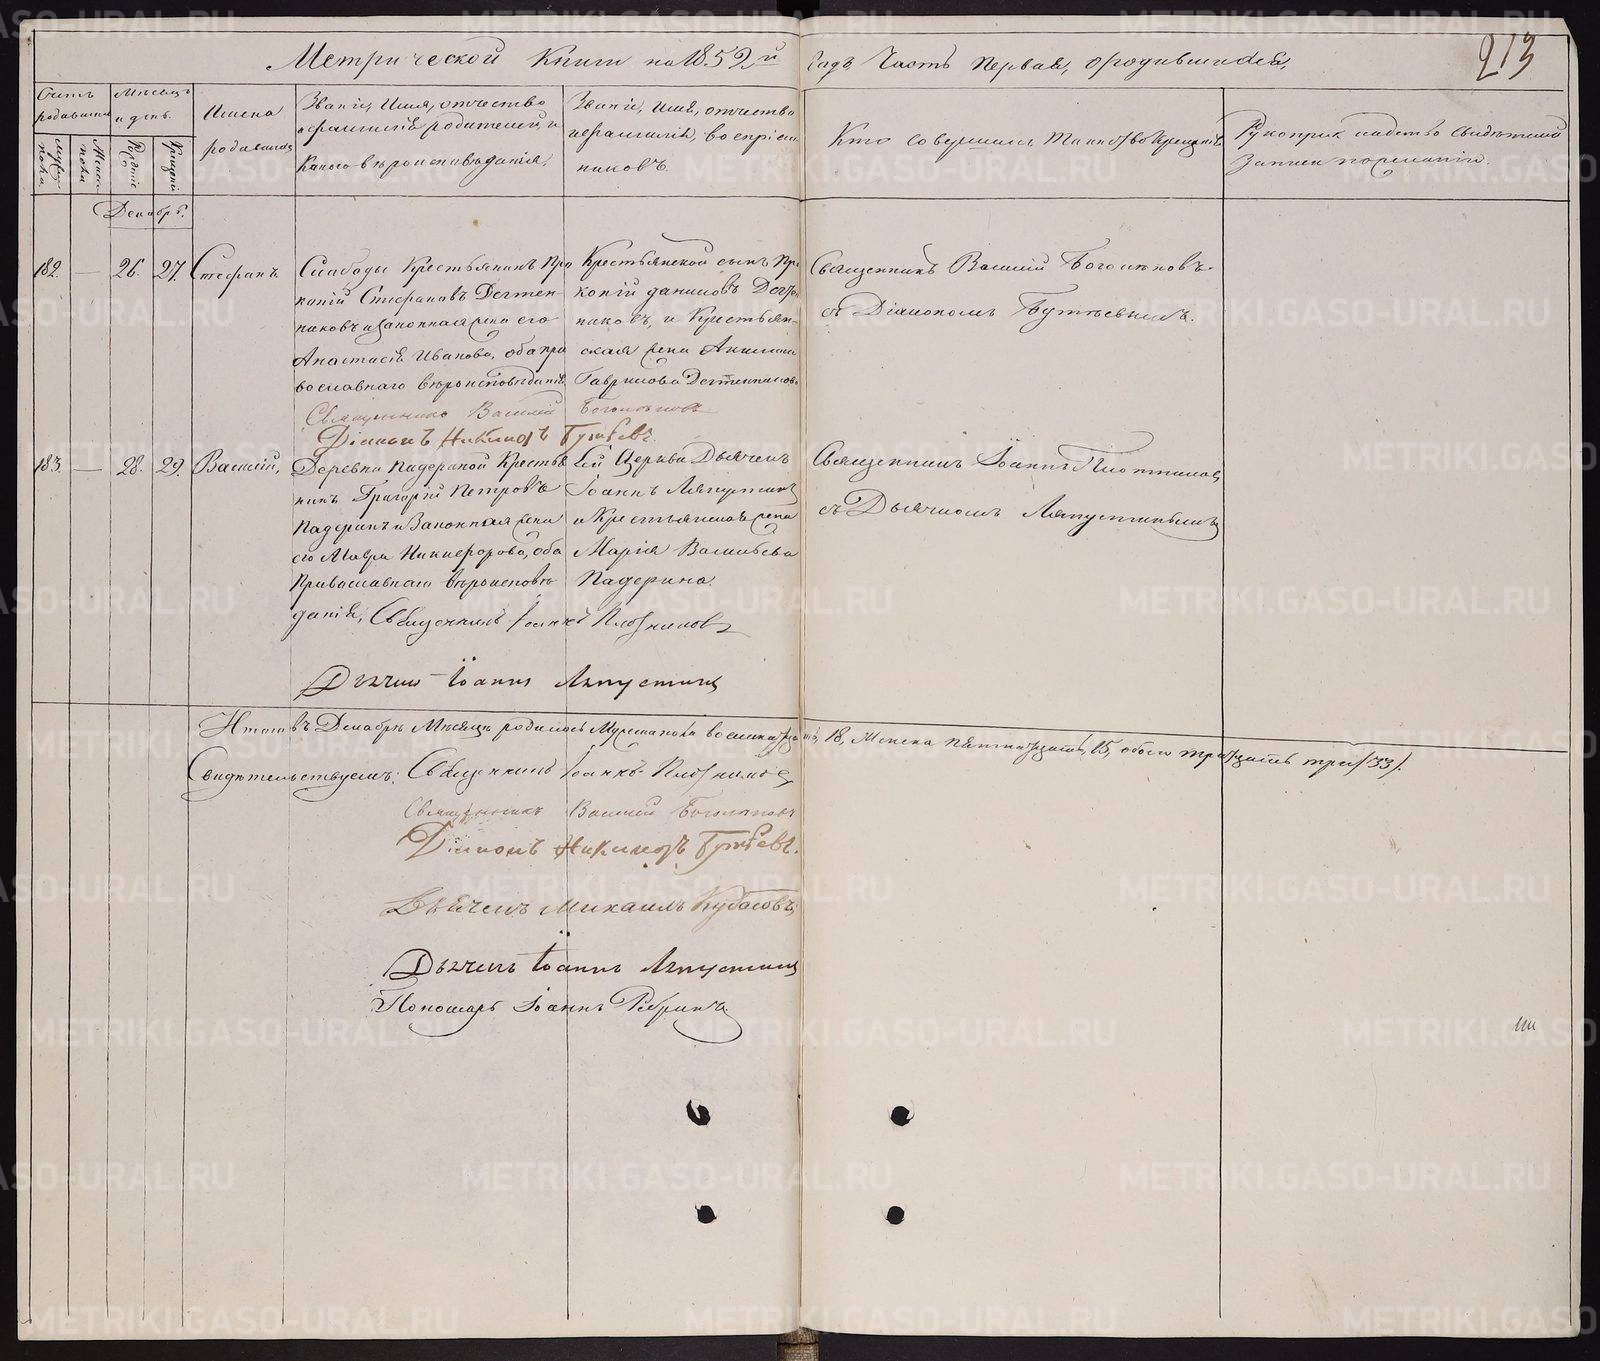 213
Метрической Книги на 1852й Годъ, Часть Первая, о родившихся,
Счетъ родившихся
Мужеска пола
Женска пола
Мѣсяцъ и день
Рожденіе
Крещеніе
Имена родившихся
Званіе, Имя, отчество
и фамилія родителей, и
какого вѣроисповѣданія,
Званіе, имя, отчество
и фамилія, воспріем
никовъ.
Кто совершилъ таинство крещенія
Рукоприкладство свидѣтелей
записи по желанію.
Декабрь.
182. — 26. 27. Стефанъ
Слободы Крестьянинъ Про
копій Стефановъ Дегтян
никовъ и законная жена его
Анастасія Иванова, оба пра
вославнаго вѣроисповѣданія
Крестьянской сынъ Про
копій Даниловъ
никовъ, и Крестьян-
ская жена
Гаврилова
Священникъ Василій
съ Діакономъ
Священникъ Василій
Діаконъ Никаноръ
183. — 28. 29. Василій,
Деревни Падериной Крестья
нинъ Григорій Петровъ
Падеринъ и Законная жена
его Мавра Никифорова, оба
Православнаго вѣроисповѣ
данія,
сей Церкви Дьячекъ
Іоаннъ Ляпустинъ
и Крестьянская жена
Марія Васильева
Падерина.
Священникъ Іоаннъ Плотниковъ
съ Дьячкомъ Ляпустинымъ
Священникъ Іоаннъ Плотниковъ
Дьячекъ Іоаннъ Ляпустинъ
Итого въ Декабрѣ Мѣсяцѣ родилось Мужеска пола восемнадцать, 18, Женска пятнадцать, 15, обоего тридцать три /33/.
Свидѣтельствуемъ: Священникъ Іоаннъ Плотниковъ
Священникъ Василій
Діаконъ Никаноръ
Дьячекъ Михаилъ Кубасовъ
Дьячекъ Іоаннъ Ляпустинъ
Пономарь Іоаннъ
METRIKI.GASO-URAL.RU